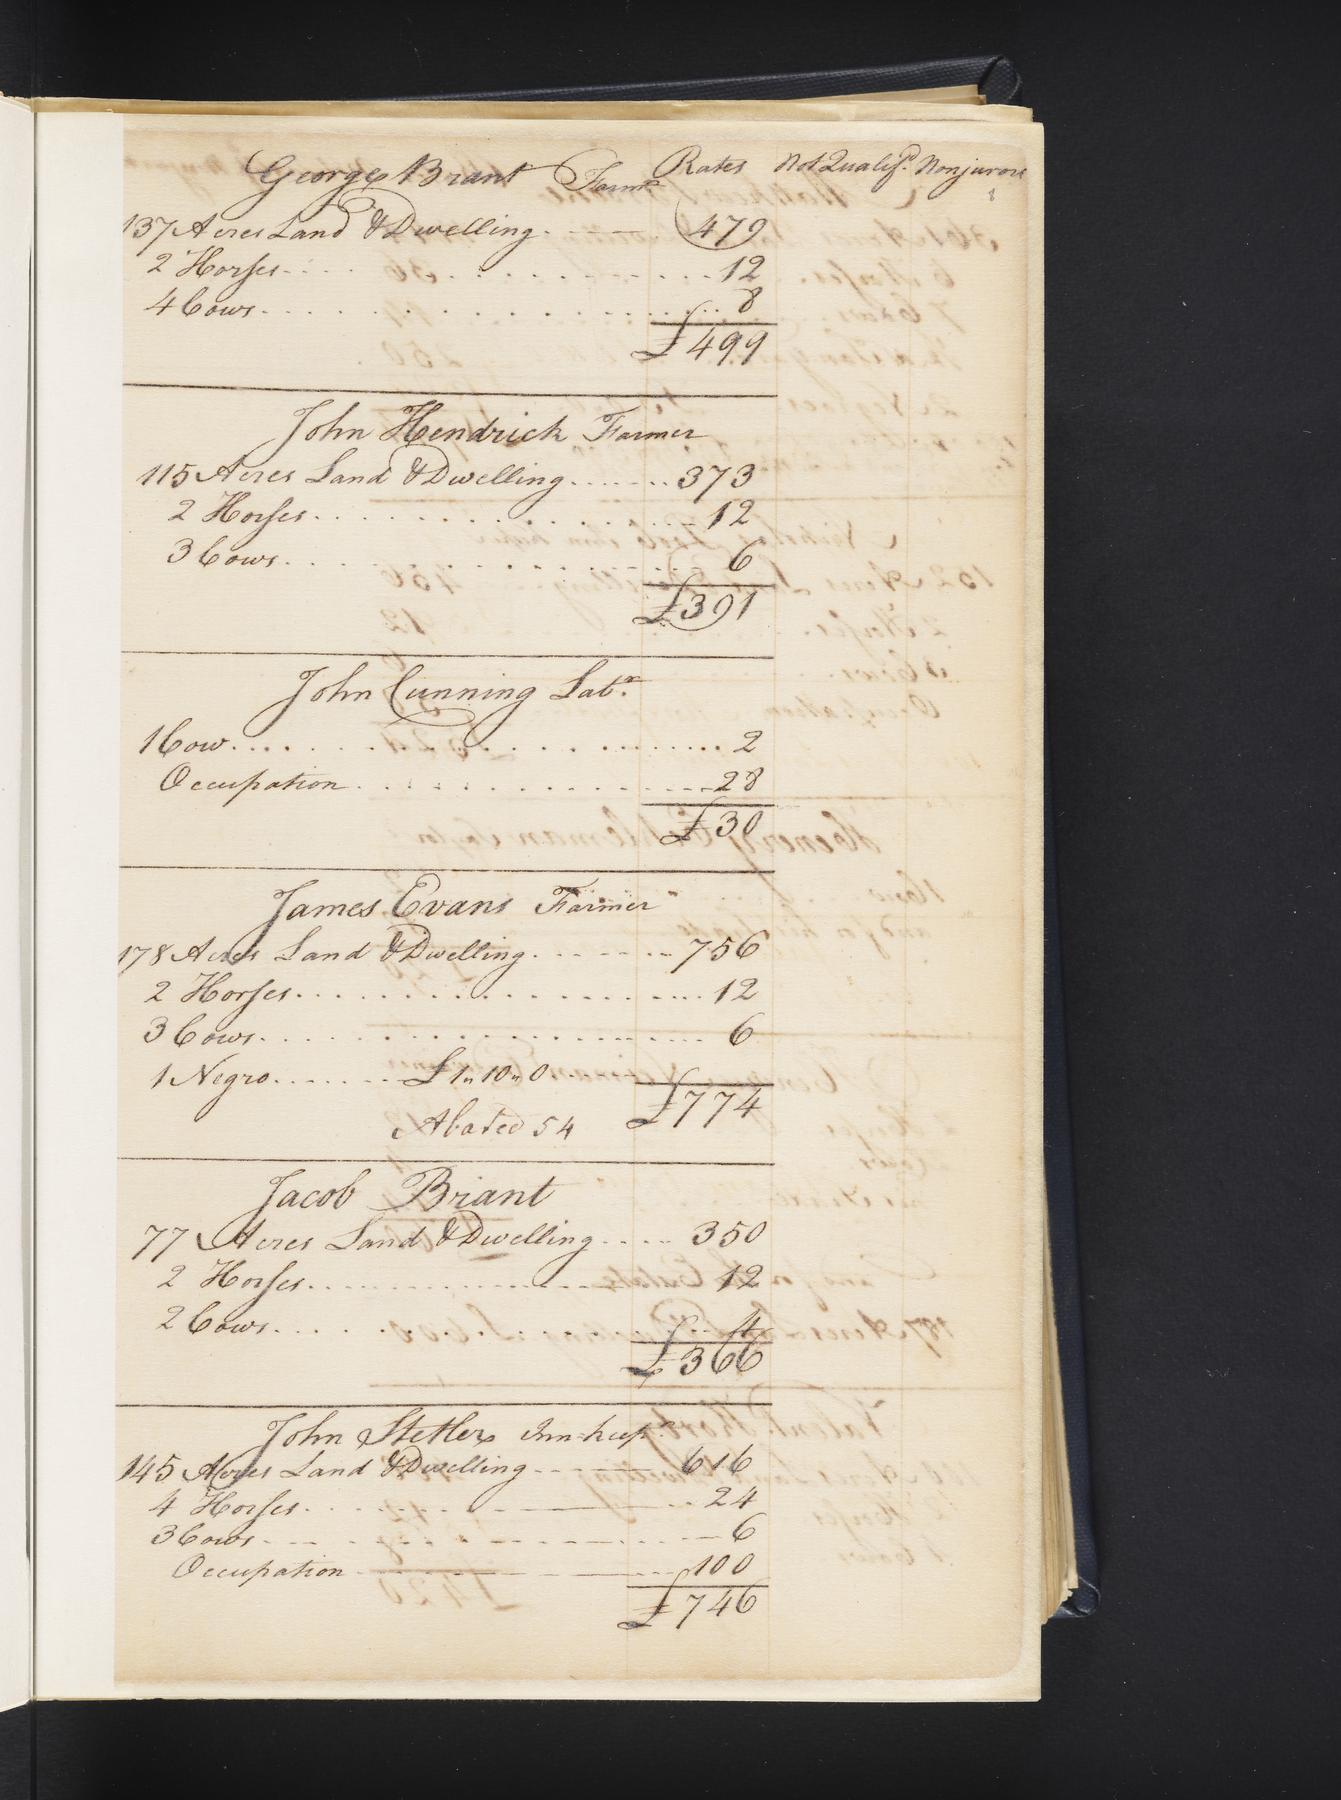 George Brant Farmr Rates Not Qualifd. Nonjurors
8
137 Acres Land & Dwelling 479
2 Horses 12
4 Cows 8
£499
John Hendrick Farmer
115 Acres Land & Dwelling 373
2 Horses 12
3 Cows 6
£391
John Cunning Labr.
1 Cow 2
Occupation 28
£30
James Evans Farmer
178 Acres Land & Dwelling 756
2 Horses 12
3 Cows 6
1 Negro £1,,10,,0
£774
Abated 54
Jacob Briant
77 Acres Land & Dwelling 350
2 Horses 12
2 Cows 4
£366
John Stetler Inn-keepr.
145 Acres Land & Dwelling 616
4 Horses 24
3 Cows 6
Occupation 100
£746